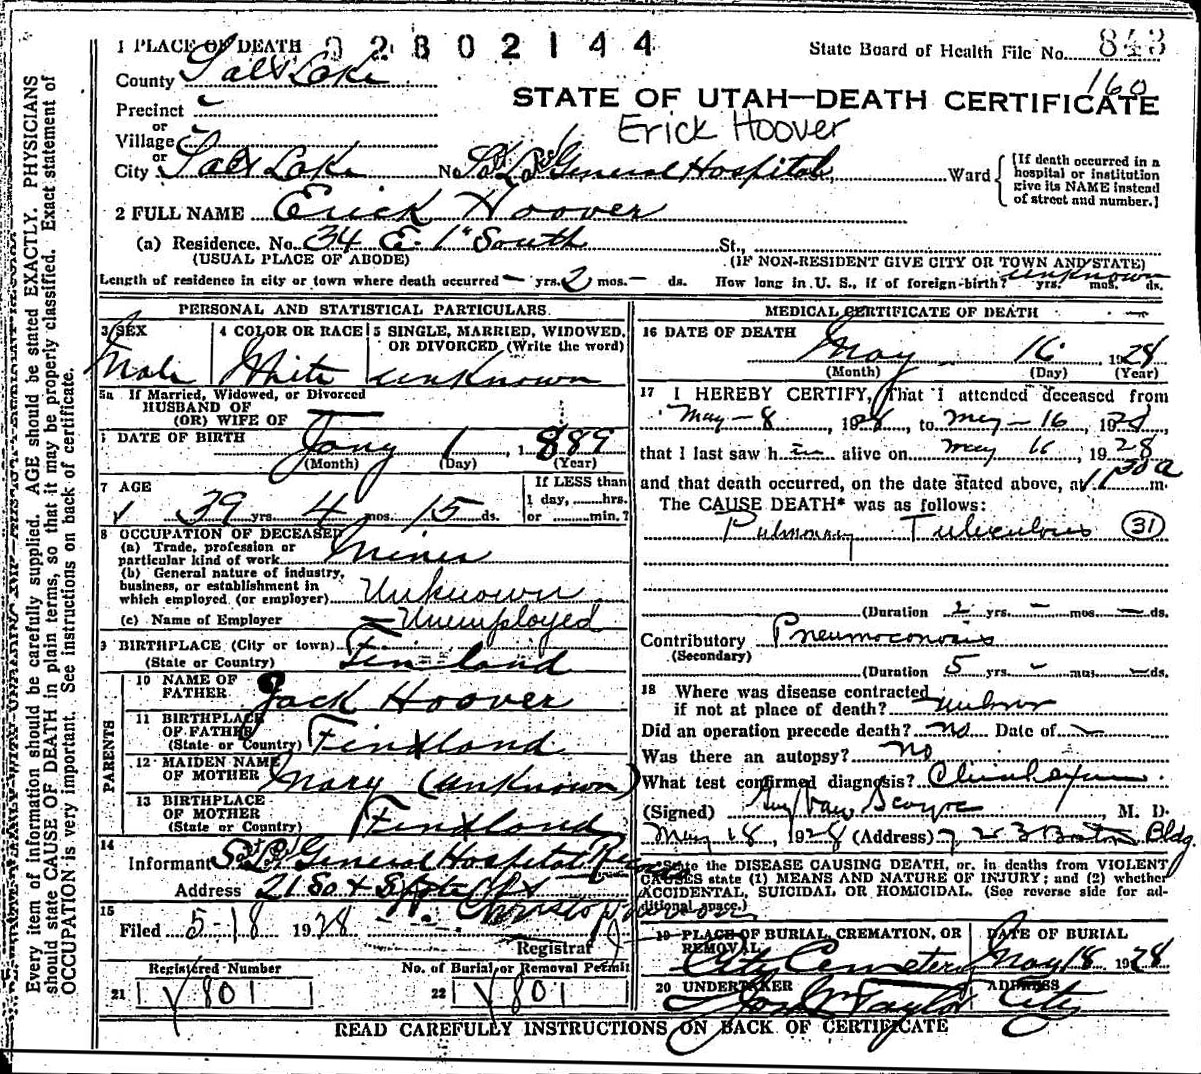 Every item of information should be carefully supplied. AGE should be stated EXACTLY. PHYSICIANS
should state CAUSE OF DEATH in plain terms, so that it may be properly classified. Exact statement of
OCCUPATION is very important. See instructions on back of certificate.
1 PLACE OF DEATH 0 2 8 0 2 1 4 4 State Board of Health File No. 843
County Salt Lake 160
Precinct
or
STATE OF UTAH—DEATH CERTIFICATE
Erick Hoover
Village
or
City Salt Lake No. Salt Lake General Hospital, Ward {[If death occurred in a hospital or institution give its NAME instead of street and number.]
2 FULL NAME Erick Hoover
(a) Residence. No. 34 E. 1" South St.,
(USUAL PLACE OF ABODE) (IF NON-RESIDENT GIVE CITY OR TOWN AND STATE)
Length of residence in city or town where death occurred — yrs. 2 mos. — ds. How long in U. S., if of foreign-birth? unknown yrs. mos. ds.
PERSONAL AND STATISTICAL PARTICULARS.
3 SEX
Male
4 COLOR OR RACE
White
5 SINGLE, MARRIED, WIDOWED,
OR DIVORCED (Write the word)
unknown
5a If Married, Widowed, or Divorced
HUSBAND OF
(OR) WIFE OF
6 DATE OF BIRTH Jany 1, 1889
(Month) (Day) (Year)
7 AGE
39 yrs. 4 mos. 15 ds.
If LESS than
1 day, hrs.
or min.?
8 OCCUPATION OF DECEASED
(a) Trade, profession or
particular kind of work Miner
(b) General nature of industry,
business, or establishment in
which employed (or employer) Unknown
(c) Name of Employer Unemployed
9 BIRTHPLACE (City or town)
(State or Country) Finland
PARENTS
10 NAME OF
FATHER Jack Hoover
11 BIRTHPLACE
OF FATHER
(State or Country) Findland
12 MAIDEN NAME
OF MOTHER Mary (unknown)
13 BIRTHPLACE
OF MOTHER
(State or Country) Findland
14
Informant S. L. General Hospital
Address 21 So & State
15
Filed 5-18 1928
Registrar
Registered Number
21 801
No. of Burial or Removal Permit
22 801
MEDICAL CERTIFICATE OF DEATH
16 DATE OF DEATH
May 16 1928
(Month) (Day) (Year)
17 I HEREBY CERTIFY, That I attended deceased from
May - 8, 1928, to May - 16, 1928,
that I last saw him alive on May 16, 1928
and that death occurred, on the date stated above, at 1 30 a m.
The CAUSE DEATH* was as follows:
Pulmonary Tuberculosis (31)
(Duration 2 yrs. — mos. — ds.
Contributory Pneumoconosis
(Secondary)
(Duration 5 yrs. — mos. — ds.
18 Where was disease contracted
if not at place of death?
Did an operation precede death? No Date of
Was there an autopsy? No
What test confirmed diagnosis?
(Signed) M. D.
May 18, 1928 (Address) 723 Boston Bldg.
*State the DISEASE CAUSING DEATH, or, in deaths from VIOLENT
CAUSES state (1) MEANS AND NATURE OF INJURY; and (2) whether
ACCIDENTAL, SUICIDAL OR HOMICIDAL. (See reverse side for ad-
ditional space.)
19 PLACE OF BURIAL, CREMATION, OR
REMOVAL
City Cemetery
DATE OF BURIAL
May 18 1928
20 UNDERTAKER
Taylor
ADDRESS
City
READ CAREFULLY INSTRUCTIONS ON BACK OF CERTIFICATE